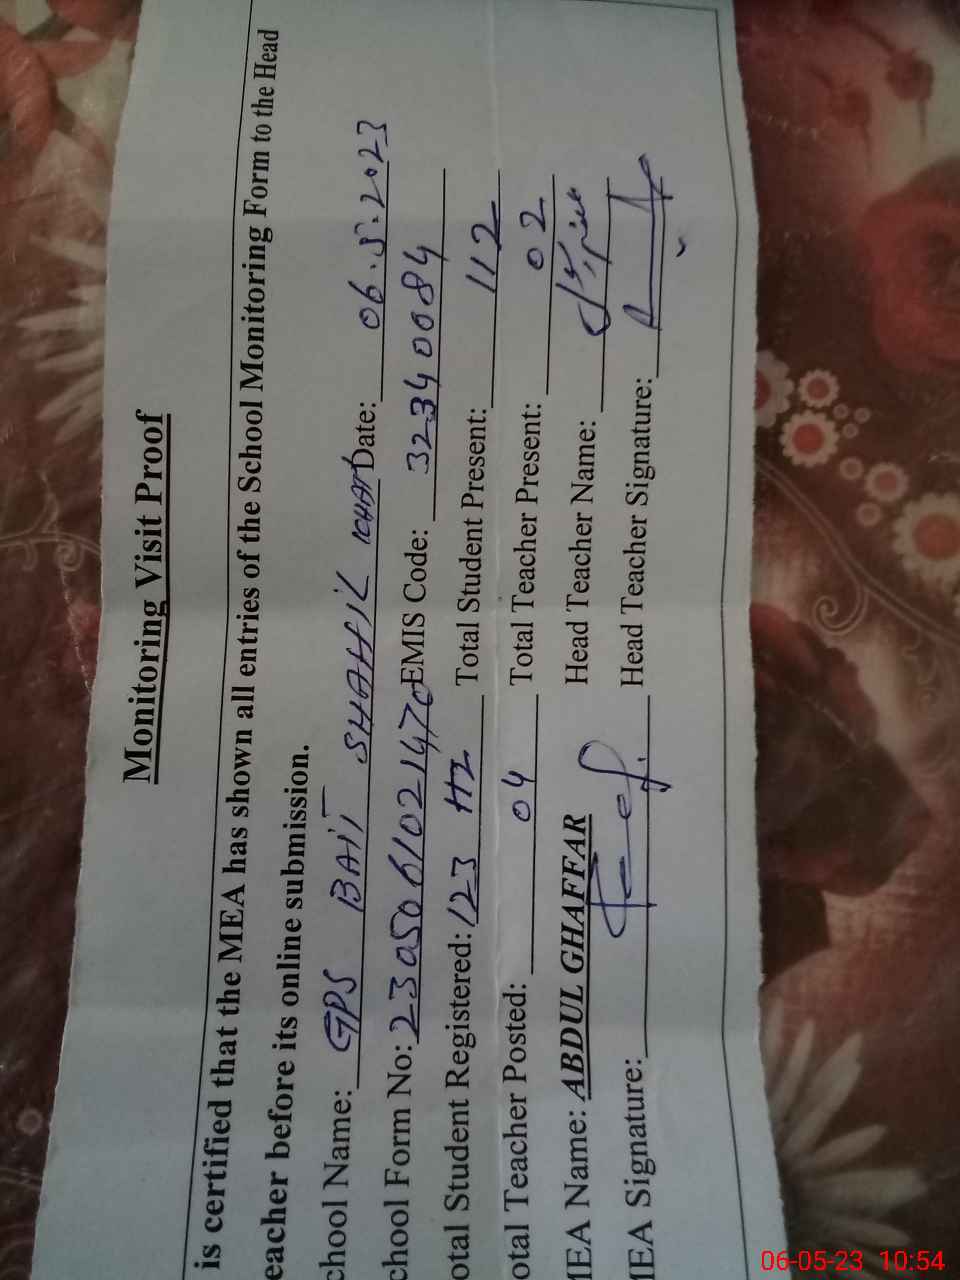 Monitoring Visit Proof
is certified that the MEA has shown all entries of the School Monitoring Form to the Head
eacher before its online submission.
chool Name: GPS BAIT SHAHIL KHAT Date: 06.5.2023
chool Form No: 230506102147 EMIS Code: 32340084
otal Student Registered: 123 Total Student Present: 112
otal Teacher Posted: 04 Total Teacher Present: 02
MEA Name: ABDUL GHAFFAR Head Teacher Name:
MEA Signature: Head Teacher Signature:
06-05-23 10:54